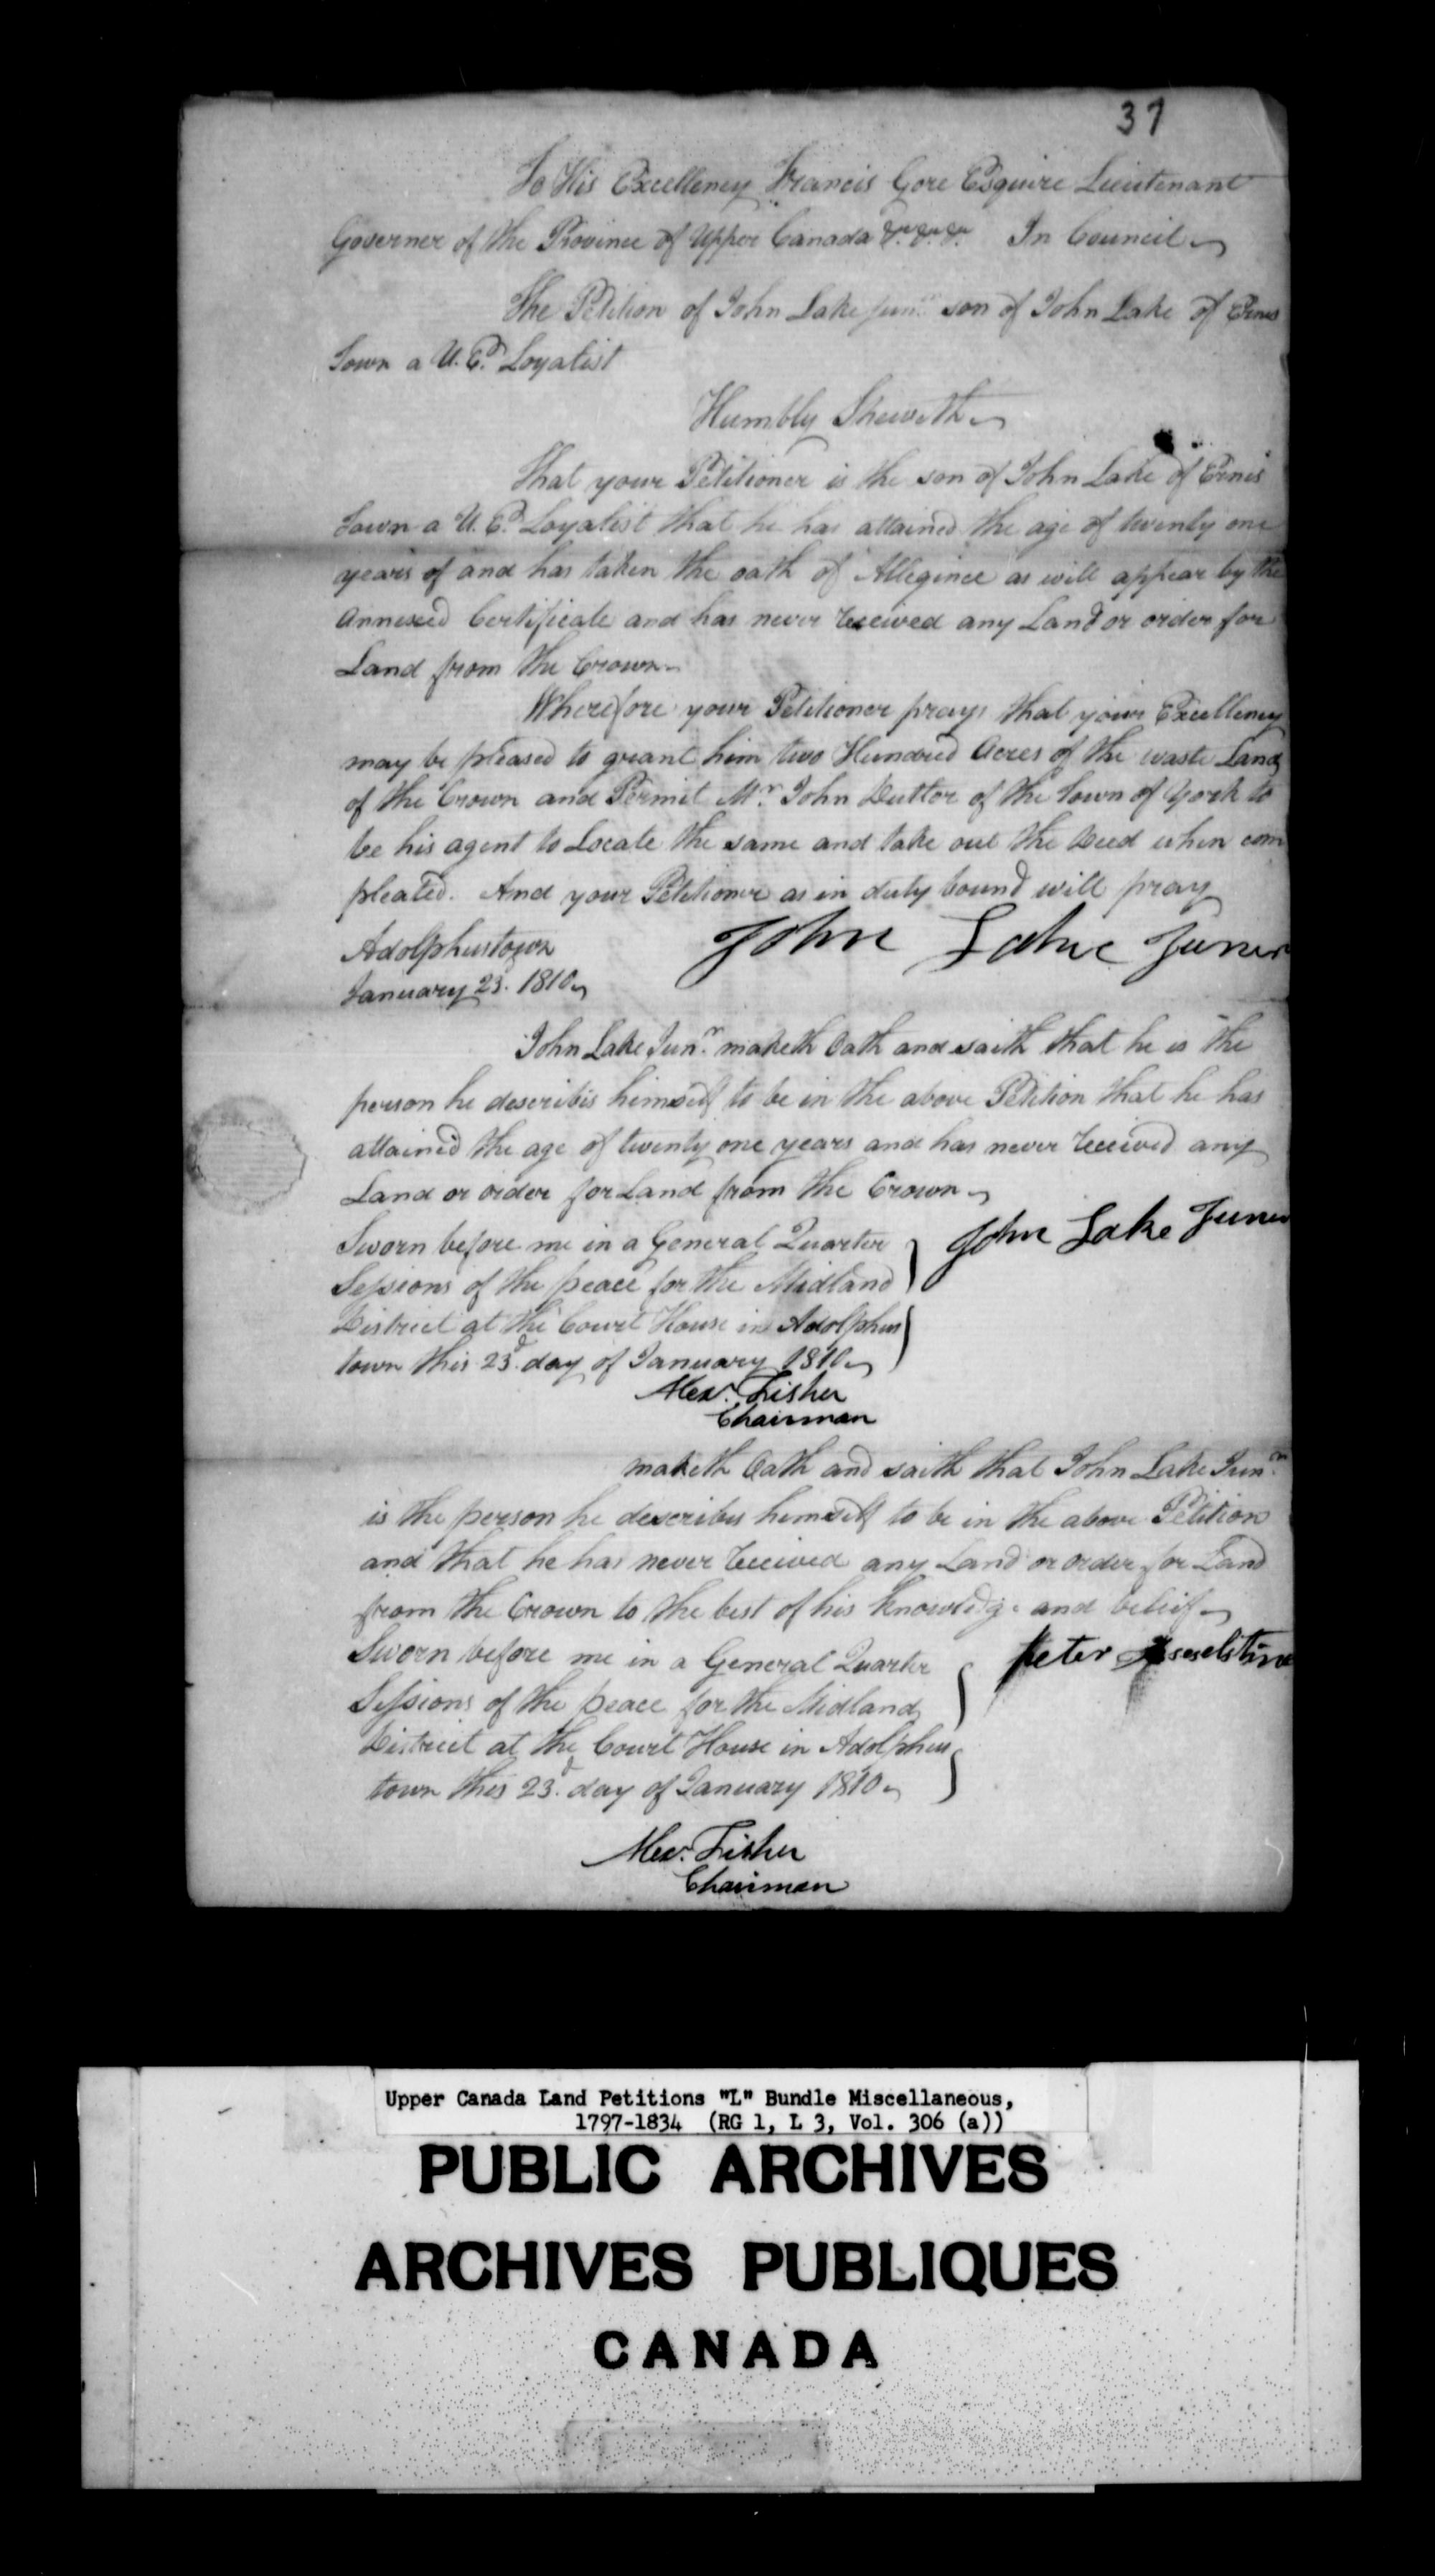 37
To His Excellency Francis Gore Esquire Lieutenant
Governer of the Province of Upper Canada &c. &c. &c. In Council
The Petition of John Lake Junr. son of John Lake of Ernes
Town a U.E. Loyalist
Humbly Sheweth
That your Petitioner is the son of John Lake of Ernes
Town a U.E. Loyalist that he has attained the age of twenty one
years of and has taken the oath of Allegince as will appear by the
Annexed Certificate and has never received any Land or order for
Land from the Crown
Wherefore your Petitioner prays that your Excellency
may be pleased to grant him two Hundred Acres of the waste Land
of the Crown and Permit Mr. John Detlor of the Town of York to
be his agent to Locate the same and take out the Deed when com
pleated. And your Petitioner as in duty bound will pray
Adolphustown
January 23d. 1810
John Lake Juner
John Lake Junr. maketh Oath and saith that he is the
person he describes himself to be in the above Petition that he has
attained the age of twenty one years and has never received any
Land or order for Land from the Crown
Sworn before me in a General Quarter
Sessions of the peace for the Midland
District at the Court House in Adolphus
town this 23d. day of January 1810
John Lake Juner
Alexr. Fisher
Chairman
maketh Oath and saith that John Lake Junr.
is the person he describes himself to be in the above Petition
and that he has never received any Land or order for Land
from the Crown to the best of his knowledge and beleif
Sworn before me in a General Quarter
Sessions of the peace for the Midland
District at the Court House in Adolphus
town this 23d. day of January 1810
Peter Asselstine
Alexr. Fisher
Chairman
Upper Canada Land Petitions "L" Bundle Miscellaneous,
1797-1834 (RG 1, L 3, Vol. 306 (a))
PUBLIC ARCHIVES
ARCHIVES PUBLIQUES
CANADA